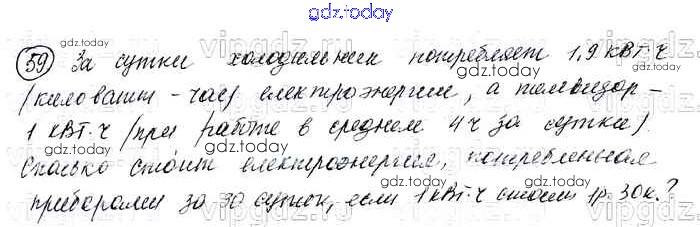 gdz.today
59 За сутки холодильник потребляет 1,9 кВт·ч
(киловатт-час) електроэнергии, а телевизор -
1 кВт·ч (при работе в среднем 4 ч за сутки).
Сколько стоит електроэнергия, потребленная
приборами за 30 суток, если 1 кВт·ч стоит 1р. 30к.?